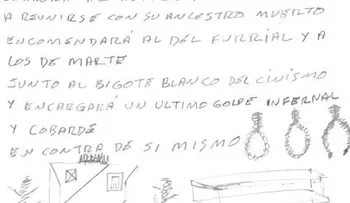 A REUNIRSE CON SU ANCESTRO MUERTO
ENCOMENDARÁ AL DEL FURRIAL Y A
LOS DE MARTE
JUNTO AL BIGOTE BLANCO DEL CINISMO
Y ENCARGARÁ UN ULTIMO GOLPE INFERNAL
Y COBARDE
EN CONTRA DE SI MISMO